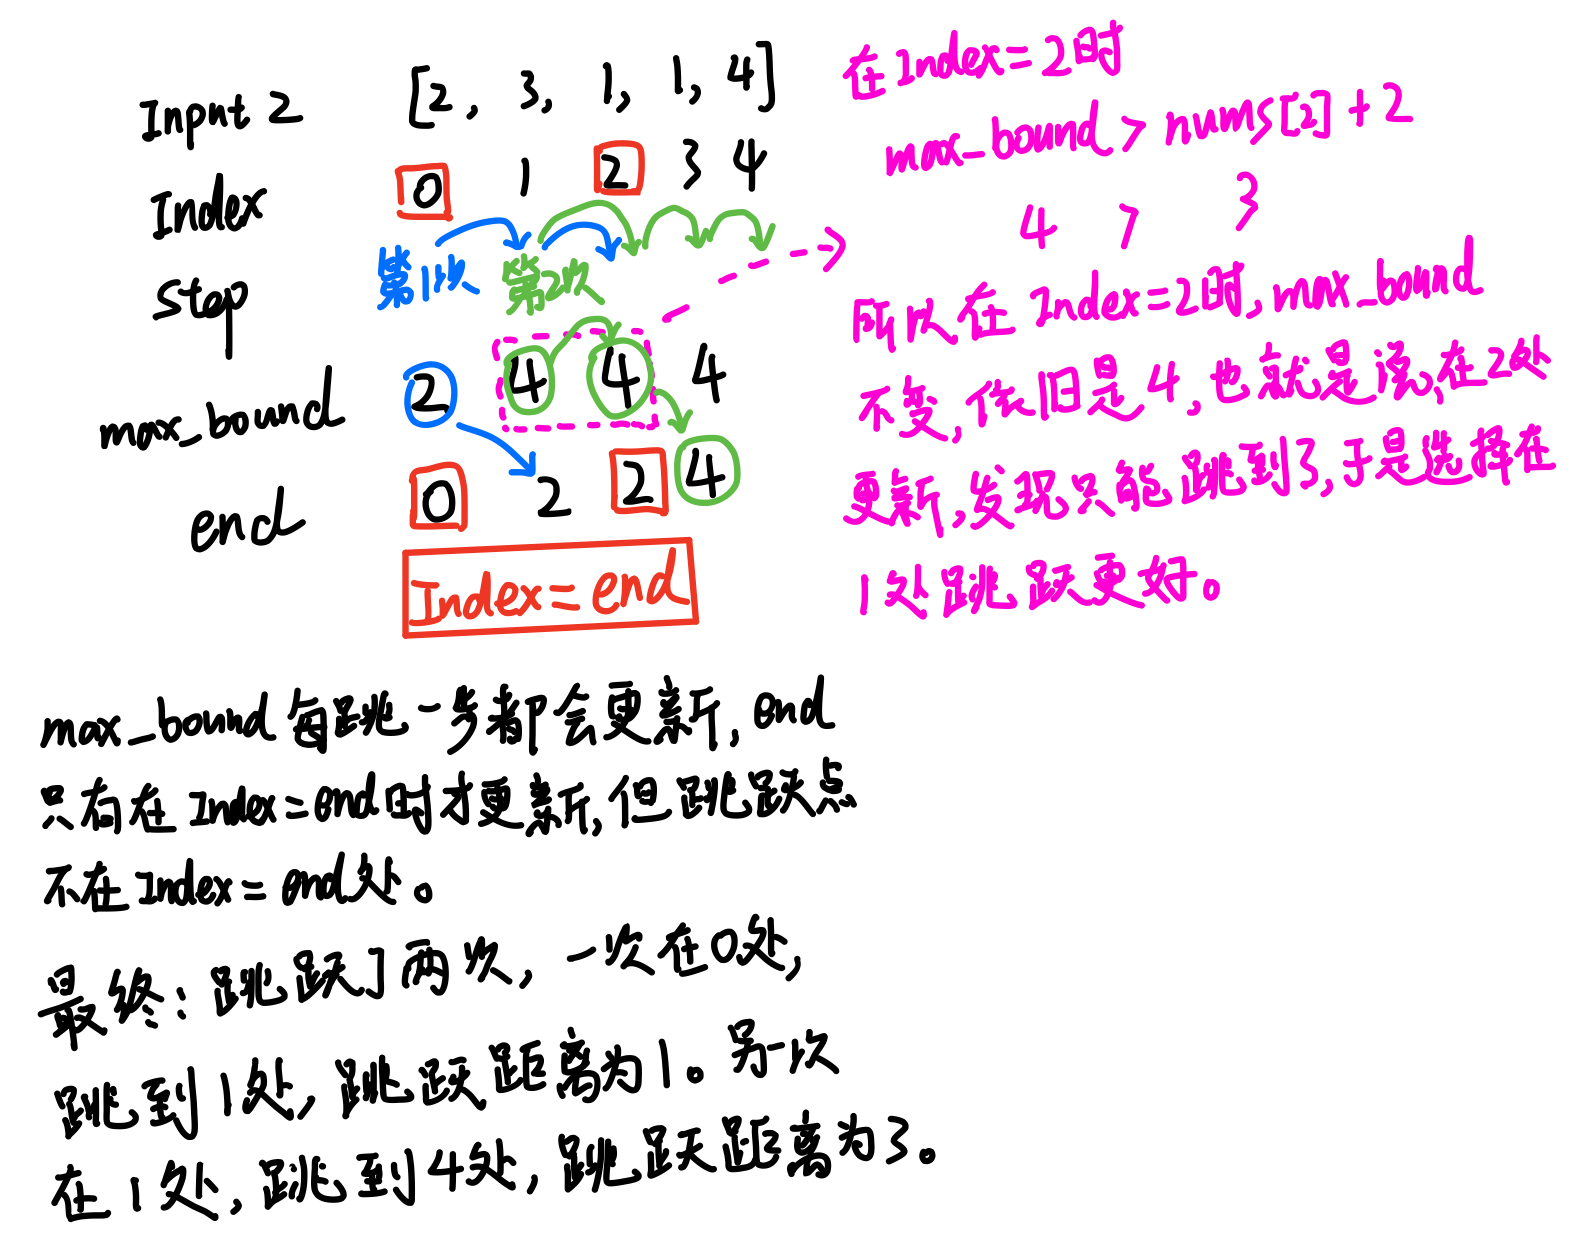 Input 2 [2, 3, 1, 1, 4]
Index 0 1 2 3 4
Step 第1次 第2次
max_bound 2 4 4 4
end 0 2 2 4
Index = end
在Index = 2时
max_bound > nums[2] + 2
4 > 3
所以在 Index=2时, max_bound
不变, 依旧是4, 也就是说, 在2处
更新, 发现只能跳到3, 于是选择在
1处跳跃更好。
max_bound 每跳一步都会更新, end
只有在 Index=end时才更新, 但跳跃点
不在Index = end处。
最终: 跳跃了两次, 一次在0处,
跳到1处, 跳跃距离为1。另一次
在1处, 跳到4处, 跳跃距离为3。